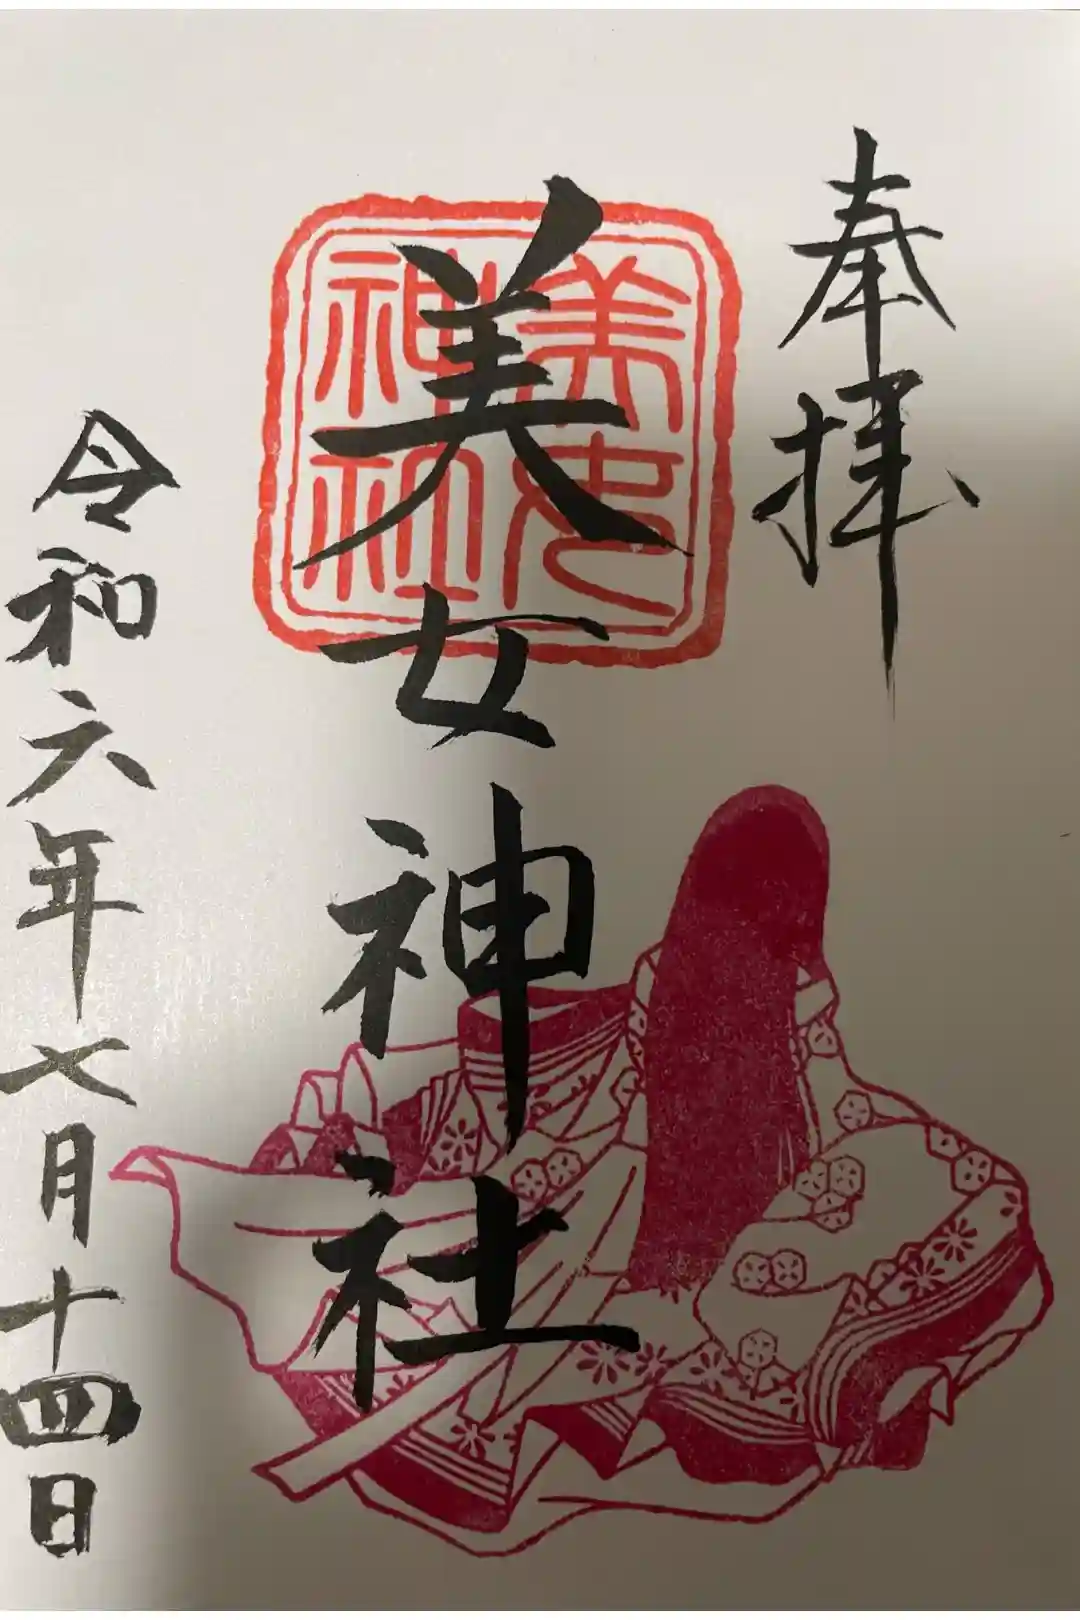 奉拝
美女神社
美女
神社
令和六年七月十四日